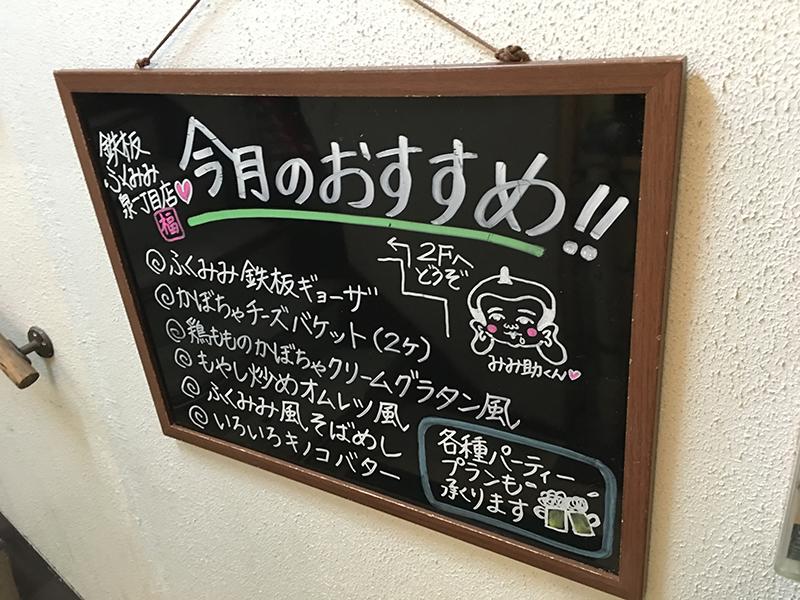 鉄板
ふくみみ
泉一丁目店
福
今月のおすすめ!!
2Fへ
どうぞ
みみ助くん
ふくみみ鉄板ギョーザ
かぼちゃチーズバケット(2ケ)
鶏もものかぼちゃクリームグラタン風
もやし炒めオムレツ風
ふくみみ風そばめし
いろいろキノコバター
各種パーティー
プランも
承ります